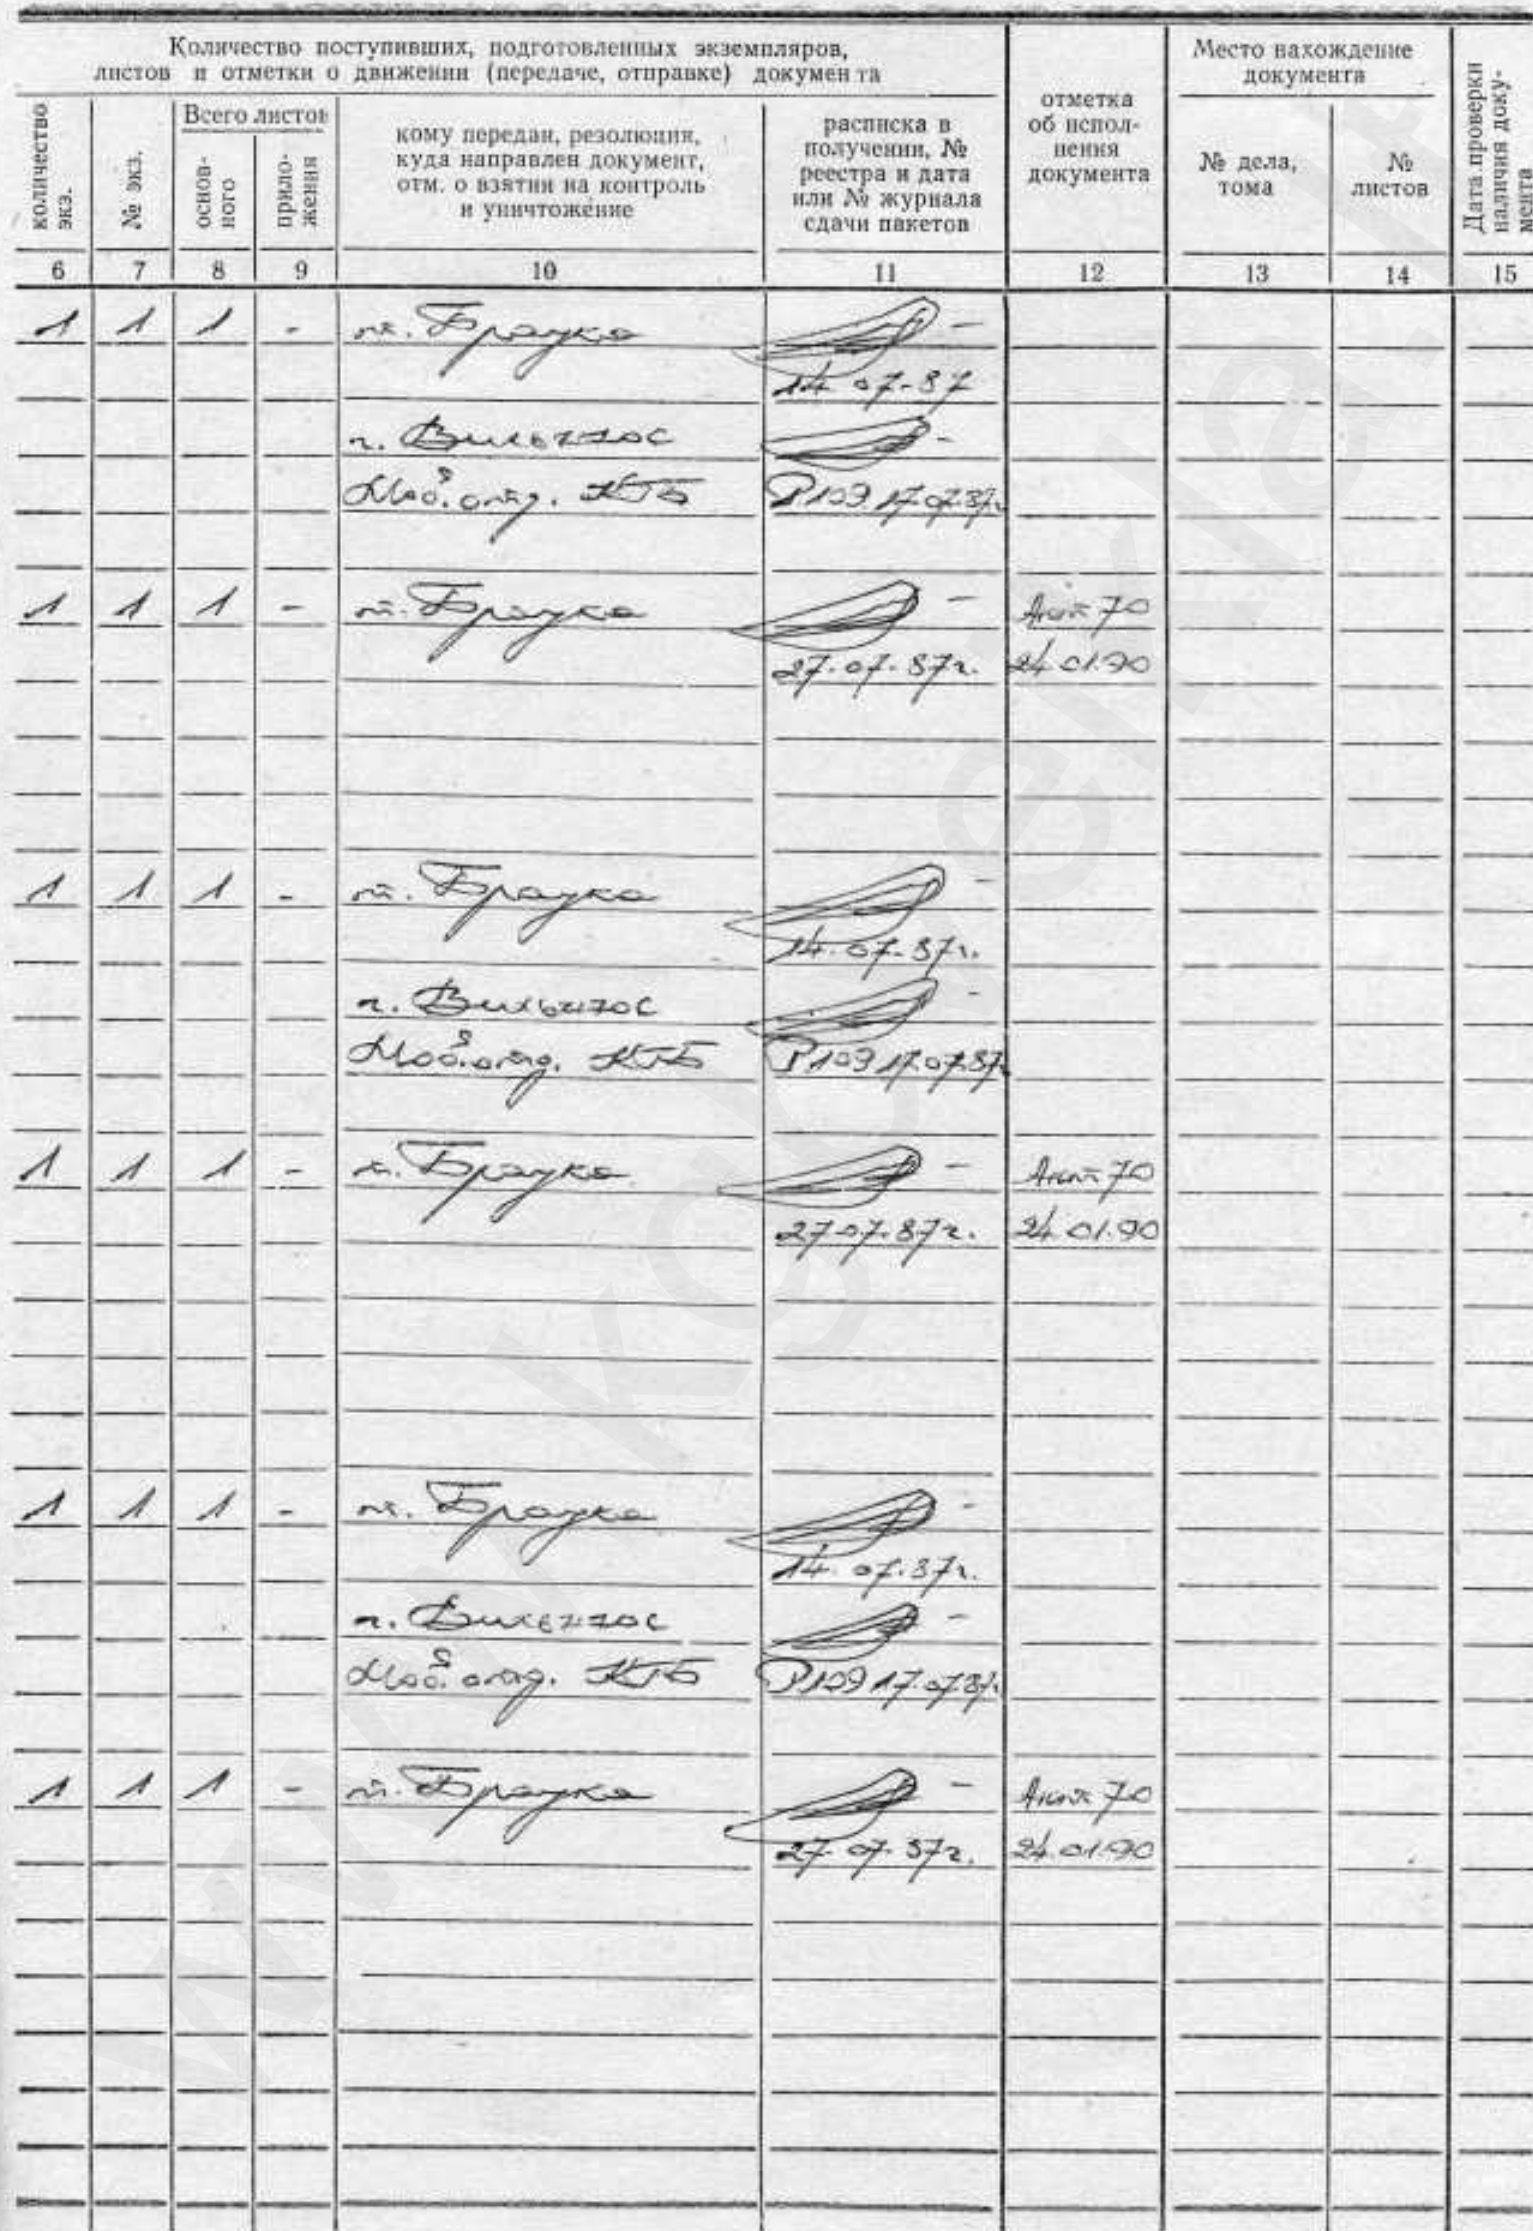 Количество поступивших, подготовленных экземпляров,
листов и отметки о движении (передаче, отправке) документа
Место нахождение
документа
количество
экз.
№ экз.
Всего листов
основ-
ного
прило-
жения
кому передан, резолюция,
куда направлен документ,
отм. о взятии на контроль
и уничтожение
расписка в
получении, №
реестра и дата
или № журнала
сдачи пакетов
отметка
об испол-
нения
документа
№ дела,
тома
№
листов
Дата проверки
наличия доку-
мента
6 7 8 9 10 11 12 13 14 15
1 1 1 - т. Браука -
14.07-87
г. Вильнюс -
Моб. отд. КГБ Р109 17.07.87г
1 1 1 - т. Браука - Акт 70
27.07.87г. 24.01.90
1 1 1 - т. Браука -
14.07-87г.
г. Вильнюс -
Моб. отд. КГБ Р109 17.07.87г
1 1 1 - т. Браука - Акт 70
27.07.87г. 24.01.90
1 1 1 - т. Браука -
14.07.87г.
г. Вильнюс -
Моб. отд. КГБ Р109 17.07.87г
1 1 1 - т. Браука - Акт 70
27.07.87г. 24.01.90